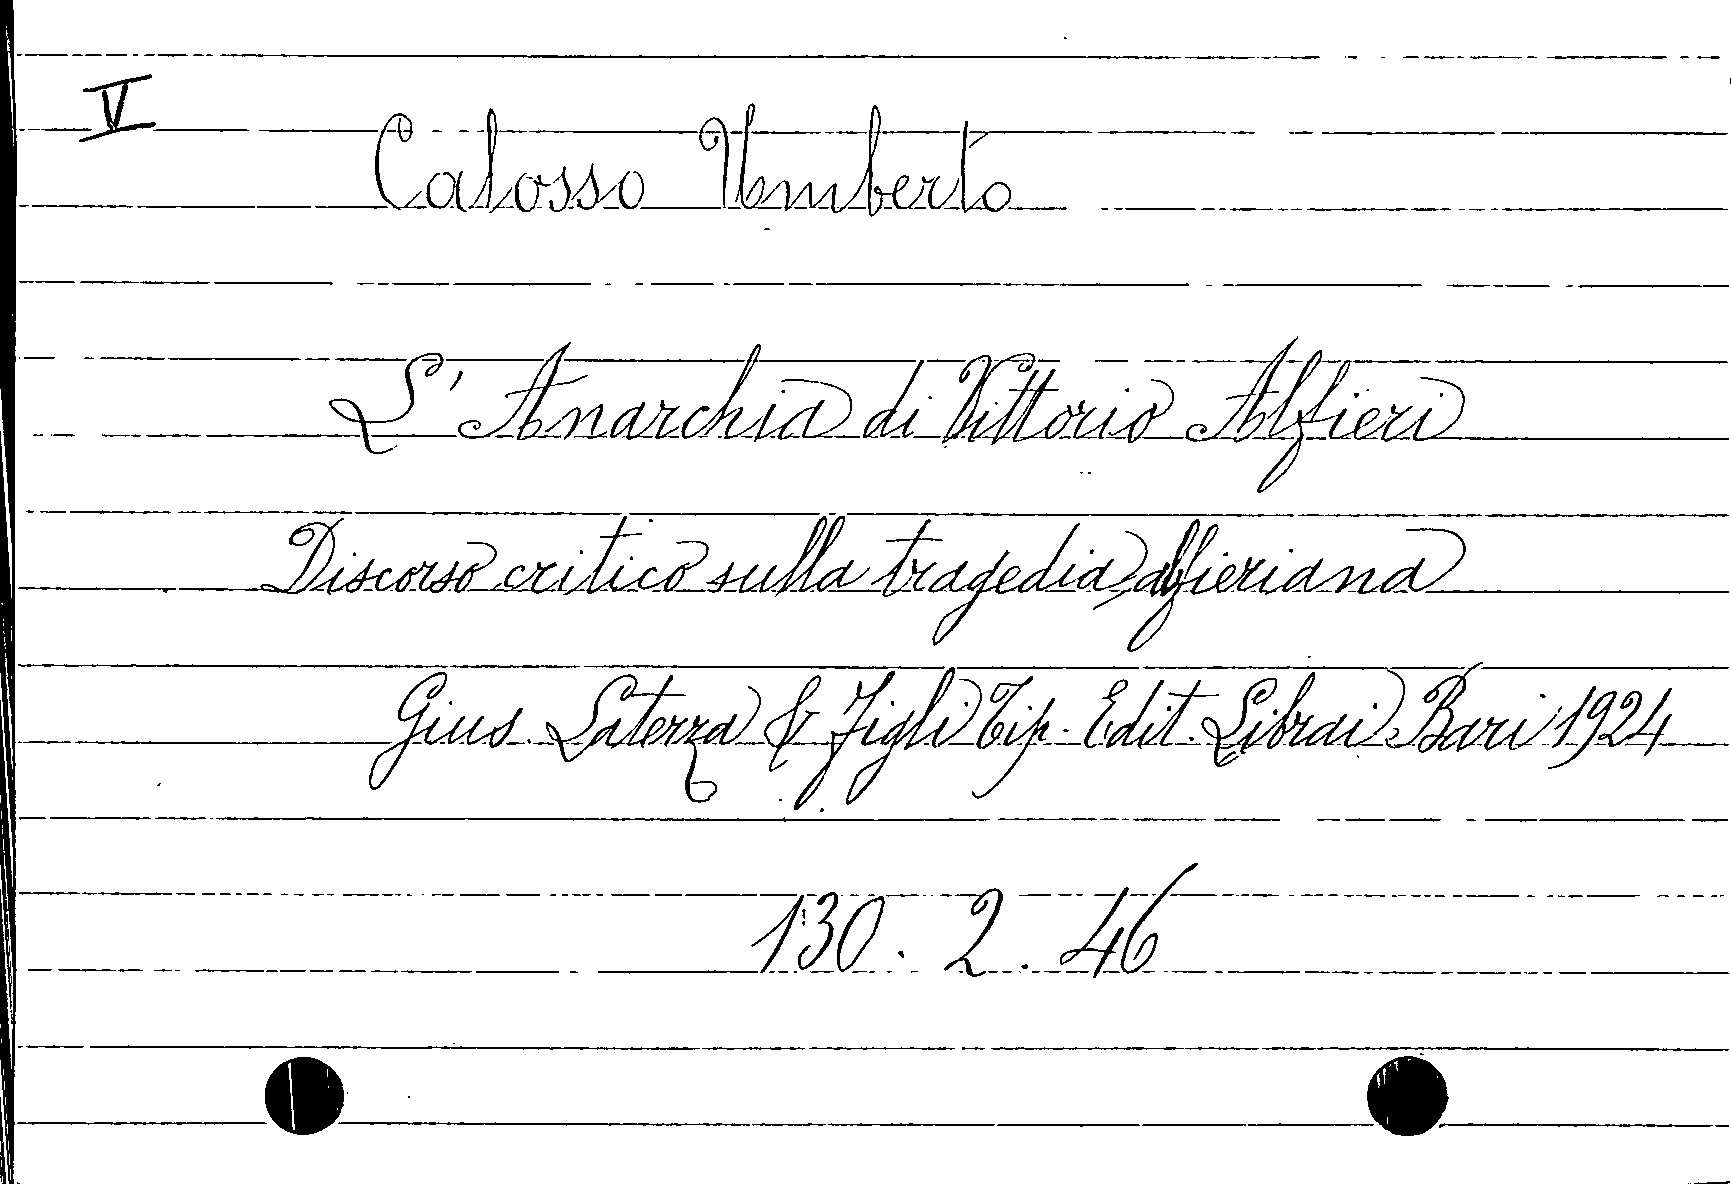 V
Calosso Umberto
L'Anarchia di Vittorio Alfieri
Discorso critico sulla tragedia alfieriana
Gius. Laterza & Figli Tip. Edit. Librai Bari 1924
130. 2. 46